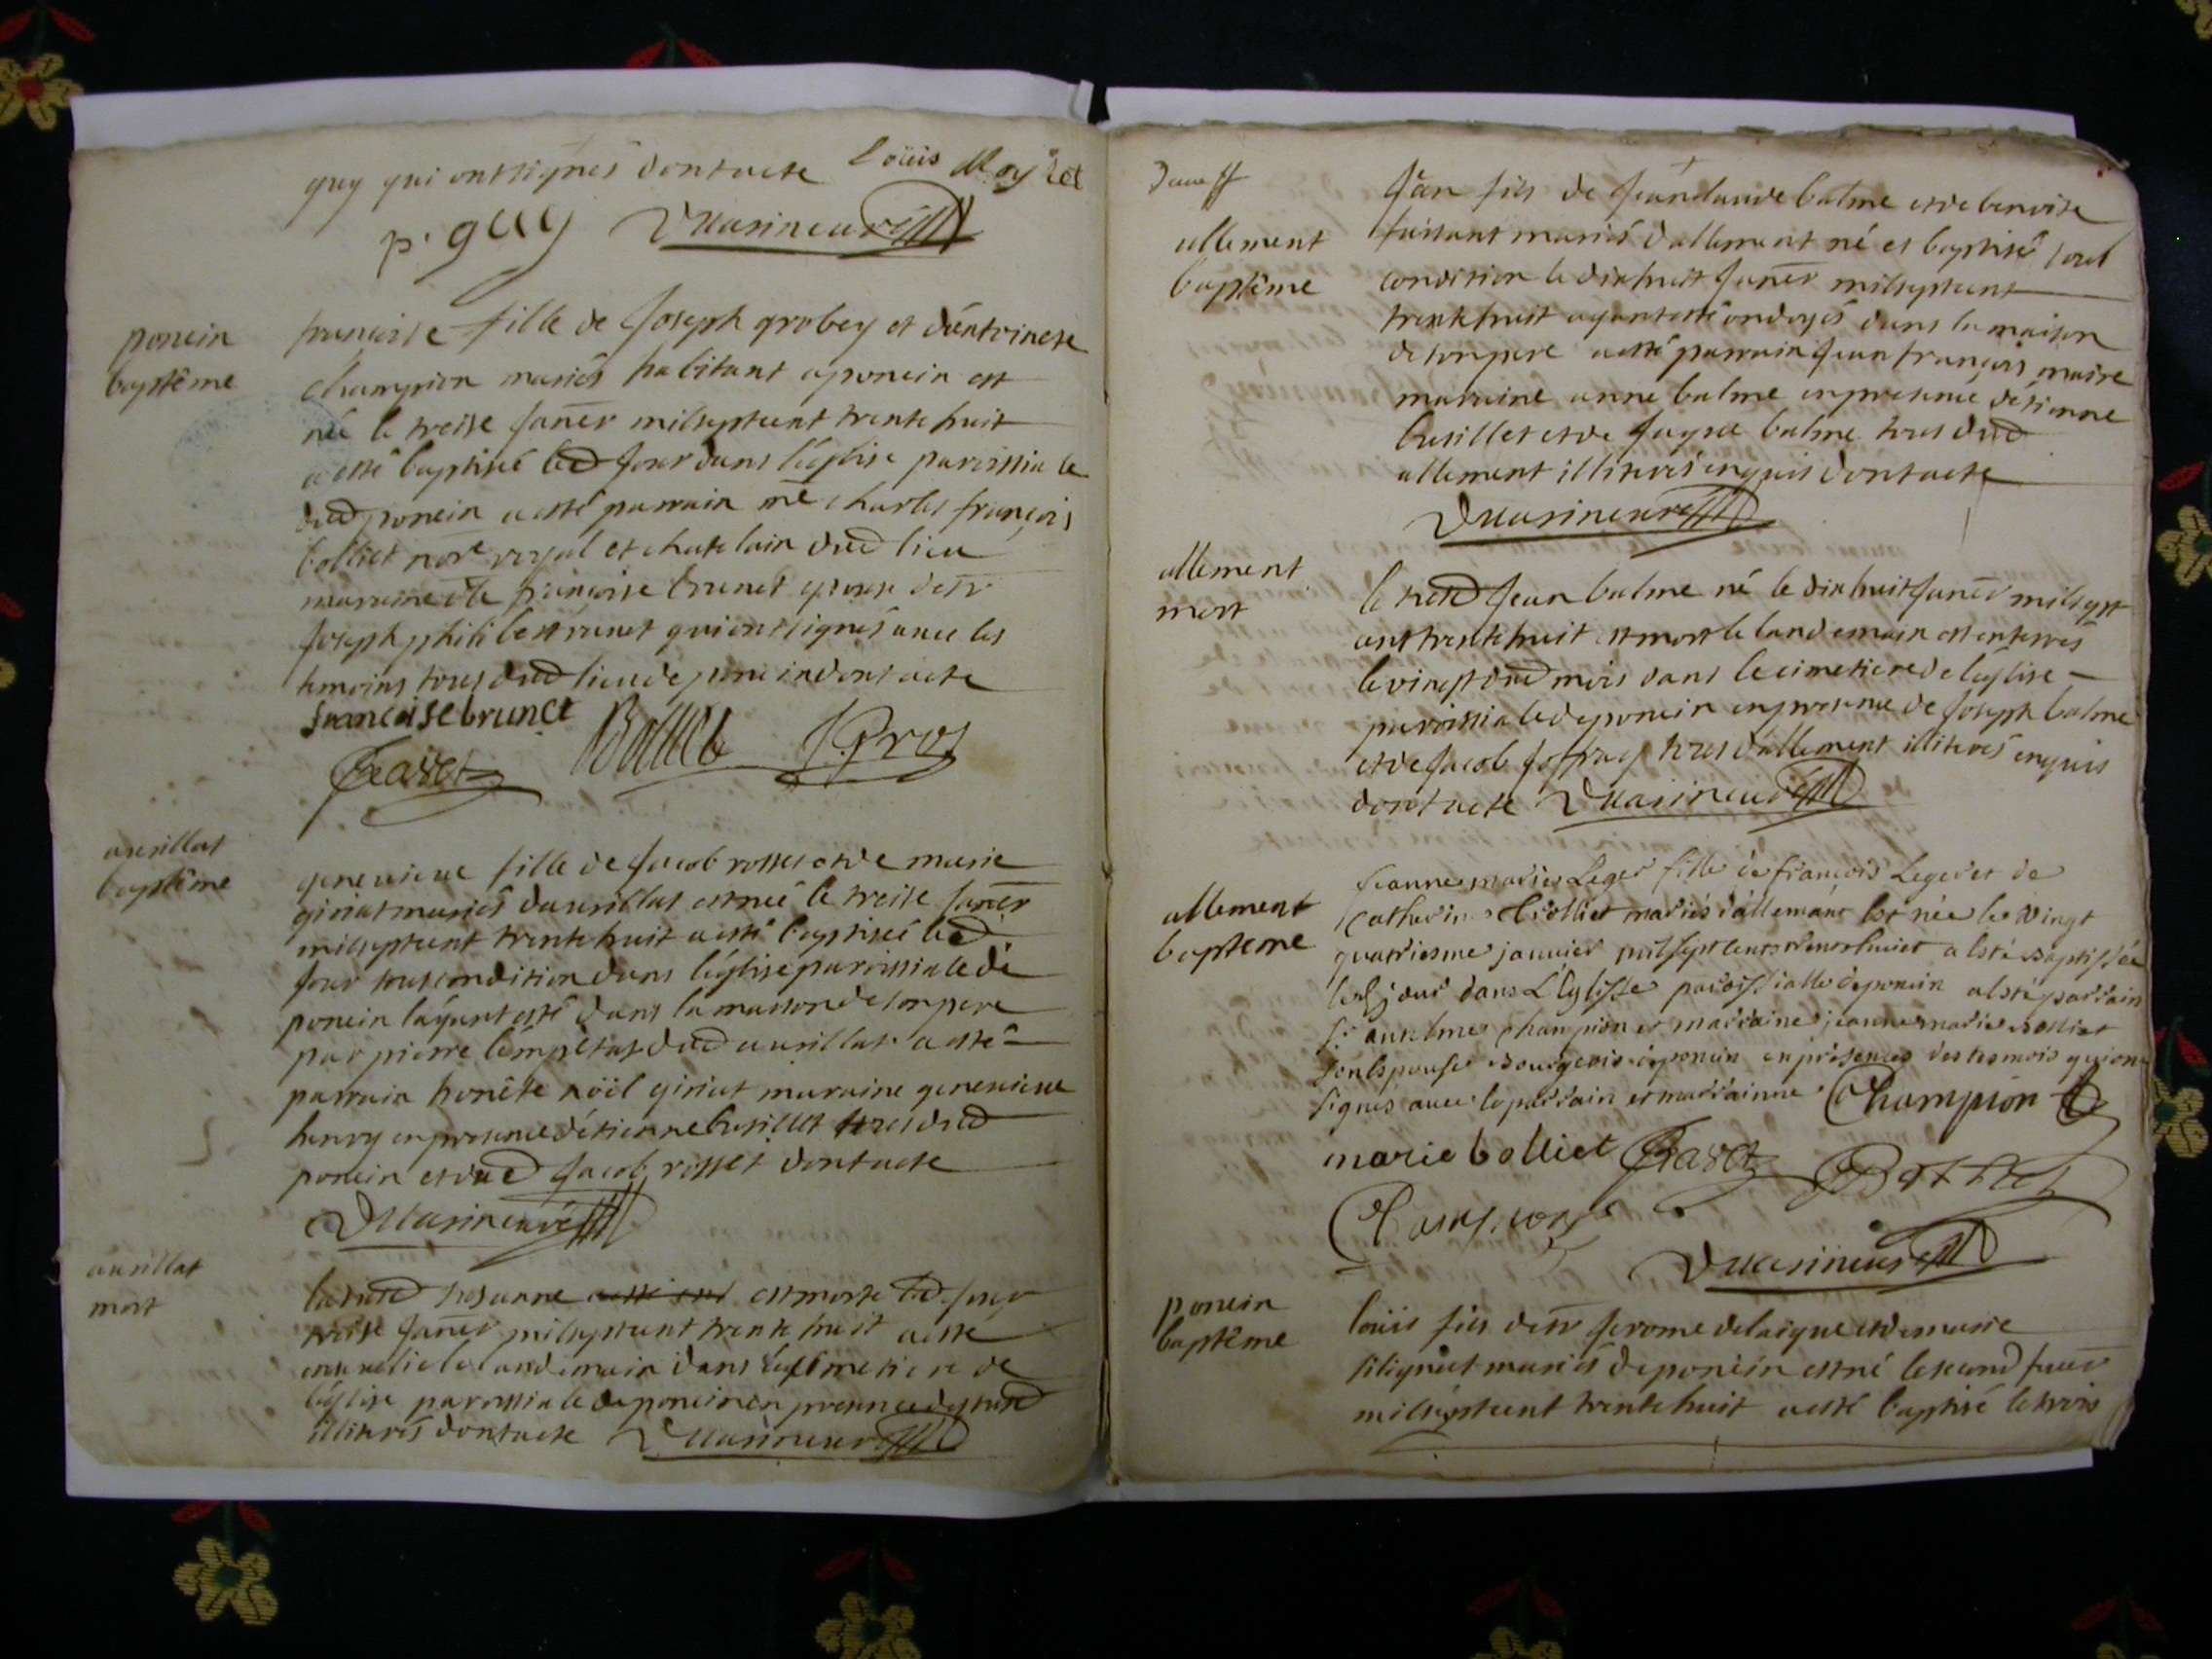 guy qui ont signés dont acte Loüis
p. guy
ponein
baptême
francoise fille de Joseph grobey et d'éntoinete
champion mariés habitant a ponein est
née le treise janer milseptcent trente huit
a esté baptisée led jour dans l'église parroissiale
dud ponein a esté parrain me charles françois
bolliet nore royal et chatelain dud lieu
marraine dle francoise brunet epouse de sr
Joseph philibert brunet qui ont signés avec les
temoins tous dud lieu de ponein dont acte
francoise brunet Bolliet J Pros
Favet
aurillat
baptême
genevieve fille de Jacob rosset et de marie
giriat mariés d'aurillat est née le treise janer
milseptcent trente huit a esté baptisée led
jour sous condition dans l'église parroissiale de
ponein l'ayant esté dans la maison de son pere
par pierre dud aurillat a esté
parrain honête nöël giriat maraine genevieve
henry en presence d'étienne busillet tous dud
ponein et dud Jacob rosset dont acte
aurillat
mort
est morte led jour
treise janer milseptcent trente huit a esté
ensevelie le landemain dans le cimetiere de
l'église parroissiale de ponein en presence
illiterés dont acte
allement
baptême
Jean fils de Jean claude balme et de benoite
mariés d'allement né et baptisé sous
condition le dixhuit janer milseptcent
trente huit ayant esté ondoyé dans la maison
de son pere a esté parrain Jean françois maire
marraine anne balme en presence d'étienne
busillet et de balme tous dud
allement illiterés enquis dont acte
allement
mort
le susd Jean balme né le dixhuit janer milsept
cent trente huit est mort le landemain est enterré
le vingt dud mois dans le cimetiere de l'église
parroissiale de ponein en presence de Joseph balme
et de Jacob joffray tous d'allement illiterés enquis
dont acte
allement
baptême
Jeanne marie Leger fille de françois Leger et de
Catherine bolliet mariés d'allemant Est née le vingt
quatriesme janvier milsept cents trente huict a Esté Baptissée
led jour dans L'Eglisse paroissialle de ponein a Esté parrain
sr anselme champion et marraine jeanne marie bolliet
son Espouse Bourgeois de ponein en présence des tesmois qui ont
signés avec le parrain et marrainne Champion
marie bolliet Favet
Champion
ponein
baptême
loüis fils de sr Jerome delaigue et de marie
mariés de ponein est né le second
milseptcent trente huit a esté baptisé le trois